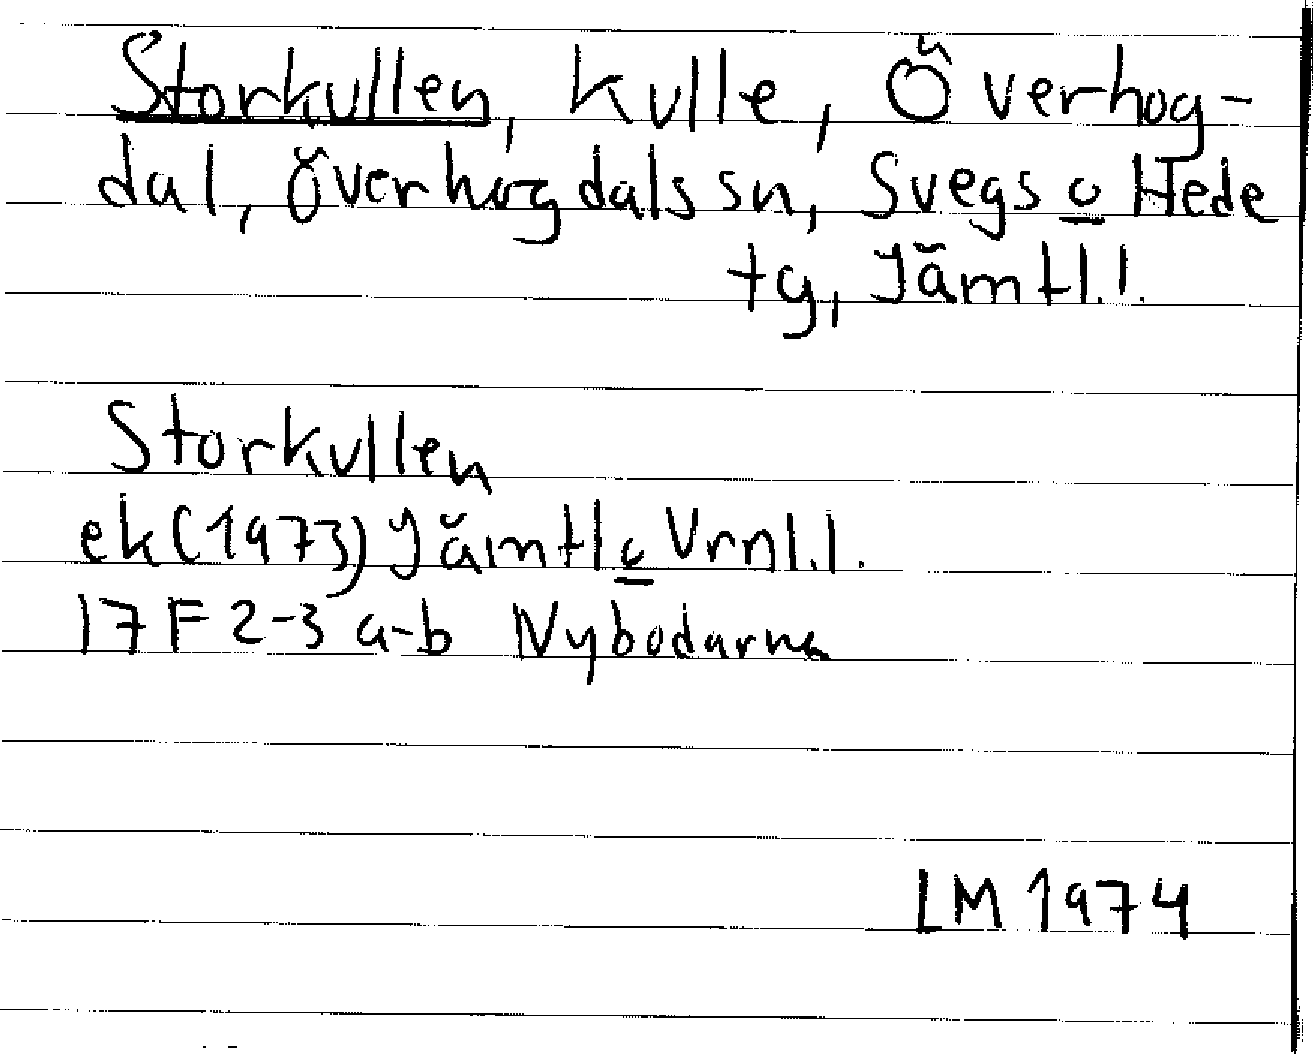 Storkullen, kulle, Överhog-
dal, Överhogdals sn, Svegs o Hede
tg, Jämtl.l.
Storkullen
ek (1973) Jämtl o Vrnl.l.
17 F 2-3 a-b Nybodarna
LM 1974